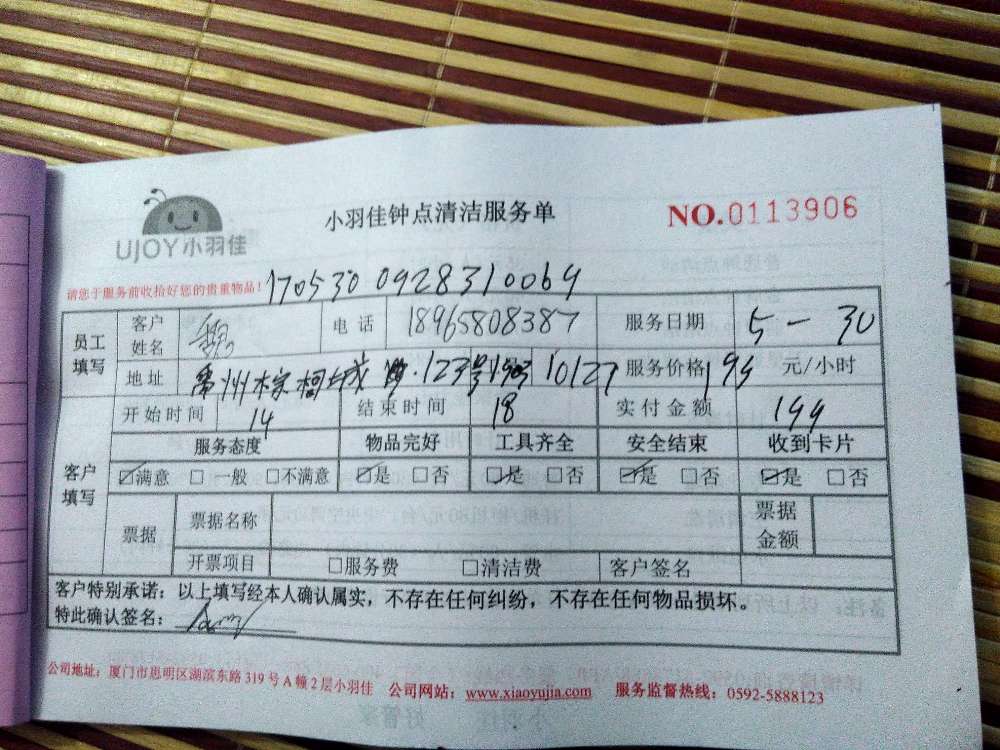 UJOY小羽佳
小羽佳钟点清洁服务单
NO.0113906
请您于服务前收拾好您的贵重物品！
170530 0928310064
员工填写 客户姓名 电话 18965808387 服务日期 5-30
地址 州棕榈城 123号 服务价格 元/小时
开始时间 14 结束时间 18 实付金额 199
客户填写 服务态度 物品完好 工具齐全 安全结束 收到卡片
☑满意 □一般 □不满意 ☑是 □否 ☑是 □否 ☑是 □否 ☑是 □否
票据 票据名称 票据金额
开票项目 □服务费 □清洁费 客户签名
客户特别承诺：以上填写经本人确认属实，不存在任何纠纷，不存在任何物品损坏。
特此确认签名：
公司地址：厦门市思明区湖滨东路319号A幢2层小羽佳 公司网站：www.xiaoyujia.com 服务监督热线：0592-5888123